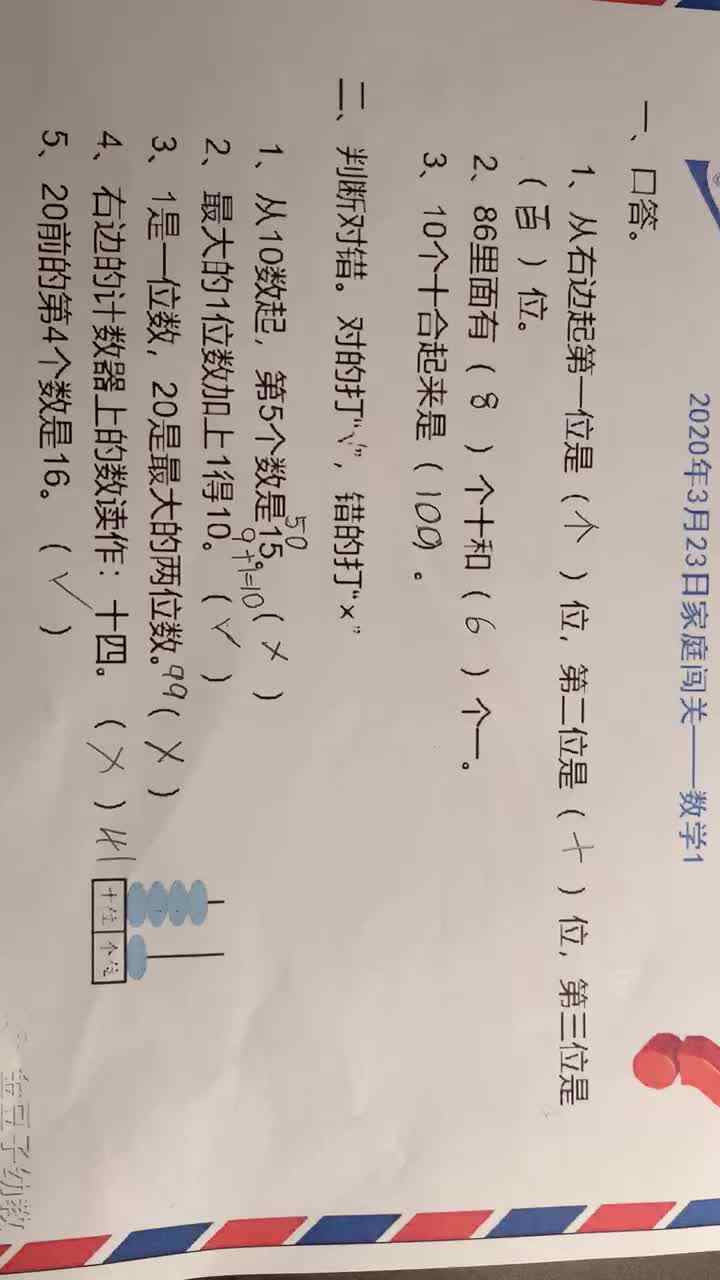 2020年3月23日家庭闯关——数学1
一、口答。
1、从右边起第一位是（个）位，第二位是（十）位，第三位是
（百）位。
2、86里面有（8）个十和（6）个一。
3、10个十合起来是（100）。
二、判断对错。对的打“√”，错的打“×”
50
1、从10数起，第5个数是15。（×）
9+1=10
2、最大的1位数加上1得10。（√）
3、1是一位数，20是最大的两位数。99（×）
4、右边的计数器上的数读作：十四。（×）41
十位 个位
5、20前的第4个数是16。（√）